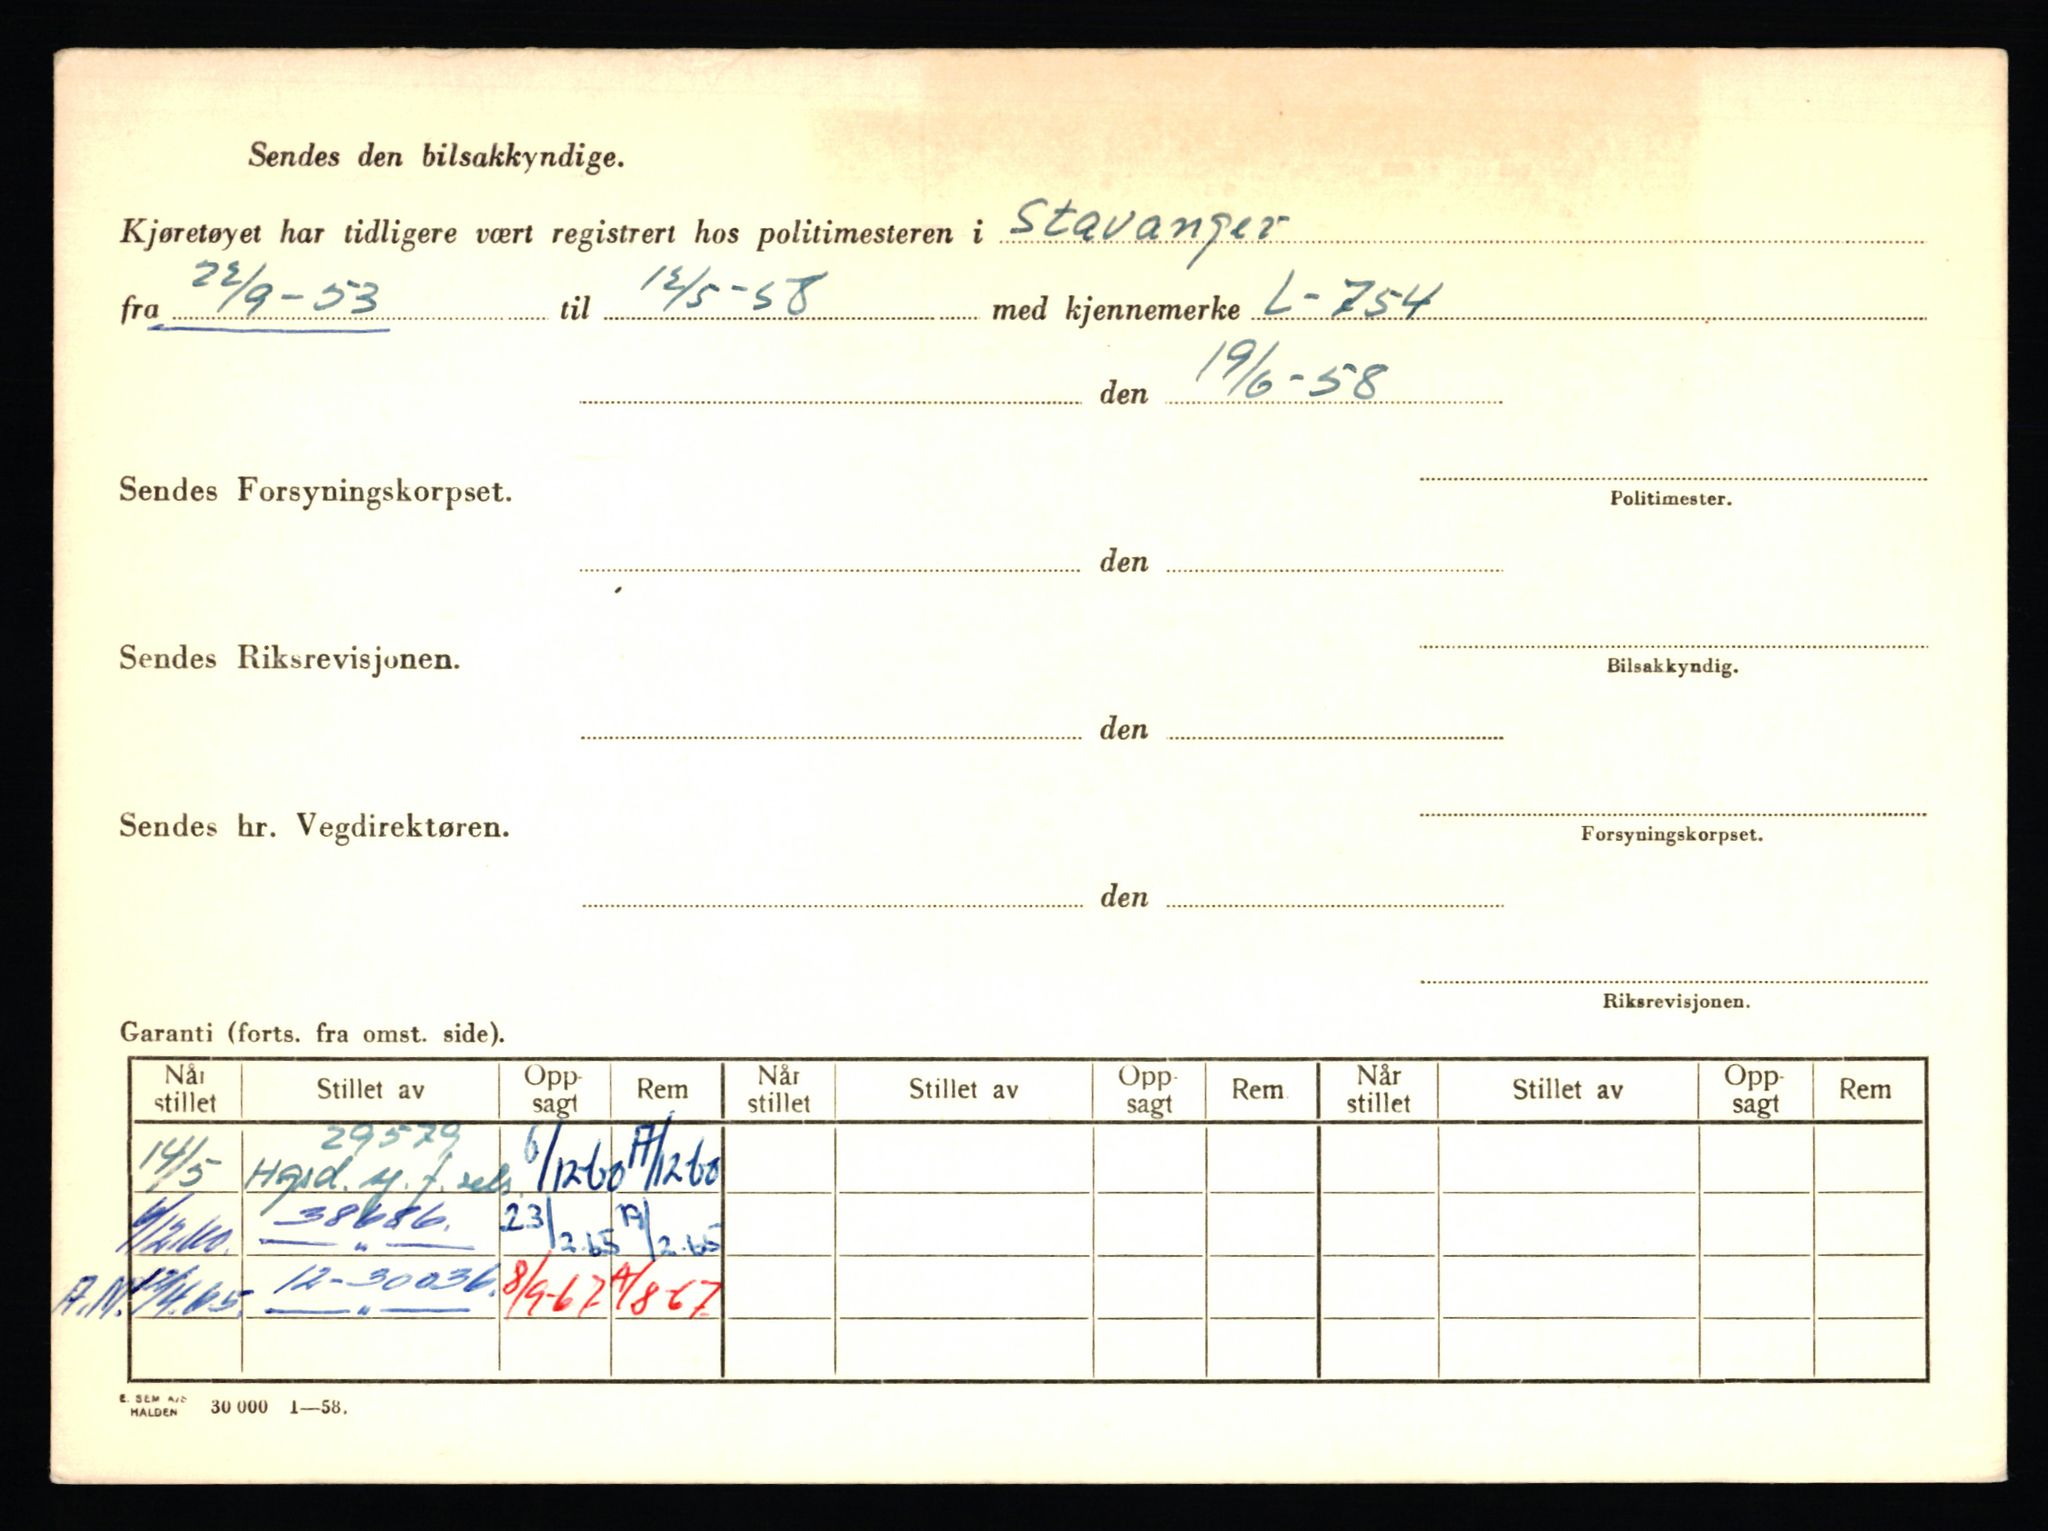 Sendes den bilsakkyndige.
Kjøretøyet har tidligere vært registrert hos politimesteren i Stavanger
fra 22/9-53 til 12/5-58 med kjennemerke L-754
den 19/6-58
Sendes Forsyningskorpset.
Politimester.
den
Sendes Riksrevisjonen.
Bilsakkyndig.
den
Sendes hr. Vegdirektøren.
Forsyningskorpset.
den
Riksrevisjonen.
Garanti (forts. fra omst. side).
Når stillet Stillet av Opp-sagt Rem Når stillet Stillet av Opp-sagt Rem. Når stillet Stillet av Opp-sagt Rem
29579
14/5 6/12-60 A/12-60
6/12.60. 38686. 23/2.65 A/2.65
— " —
A.N. 12/4.65. 12-30036. 8/9-67. A/8-67.
— " —
E. SEM A/S
HALDEN 30 000 1—58.